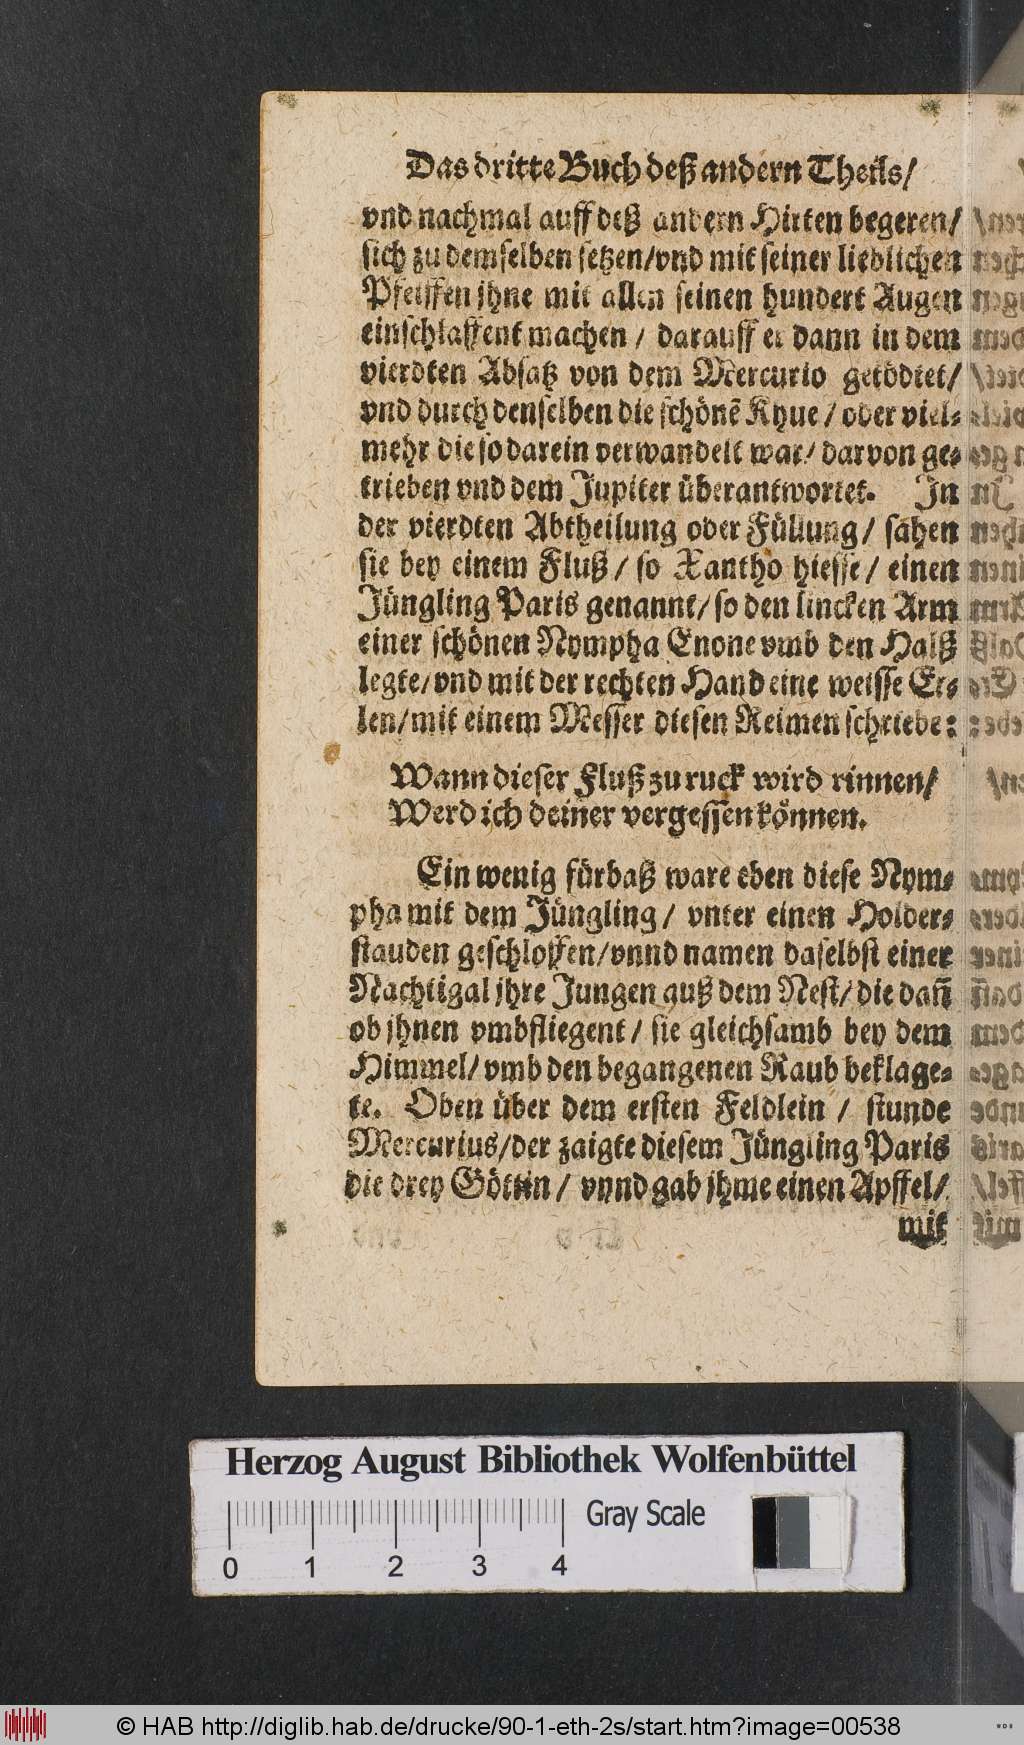 Das dritte Buch deß andern Theils/
vnd nachmal auff deß andern Hirten begeren/
sich zu demselben setzen/vnd mit seiner lieblichen
Pfeiffen jhne mit allen seinen hundert Augen
einschlaffent machen / darauff er dann in dem
vierdten Absatz von dem Mercurio getödtet/
vnd durch denselben die schönẽ Khue / oder viel-
mehr die so darein verwandelt war/ darvon ge-
trieben vnd dem Jupiter überantwortet. In
der vierdten Abtheilung oder Füllung / sahen
sie bey einem Fluß / so Xantho hiesse / einen
Jüngling Paris genannt/ so den lincken Arm
einer schönen Nympha Enone vmb den Halß
legte/ vnd mit der rechten Hand eine weisse Er-
len/ mit einem Messer diesen Reimen schriebe:
Wann dieser Fluß zu ruck wird rinnen/
Werd ich deiner vergessen können.
Ein wenig fürbaß ware eben diese Nym-
pha mit dem Jüngling / vnter einen Holder-
stauden geschloffen/vnnd namen daselbst einer
Nachtigal jhre Jungen auß dem Nest/ die dañ
ob jhnen vmbfliegent / sie gleichsamb bey dem
Himmel/ vmb den begangenen Raub beklage-
te. Oben über dem ersten Feldlein / stunde
Mercurius/der zaigte diesem Jüngling Paris
die drey Göttin / vnnd gab jhme einen Apffel/
mit
Herzog August Bibliothek Wolfenbüttel
Gray Scale
0 1 2 3 4
© HAB http://diglib.hab.de/drucke/90-1-eth-2s/start.htm?image=00538